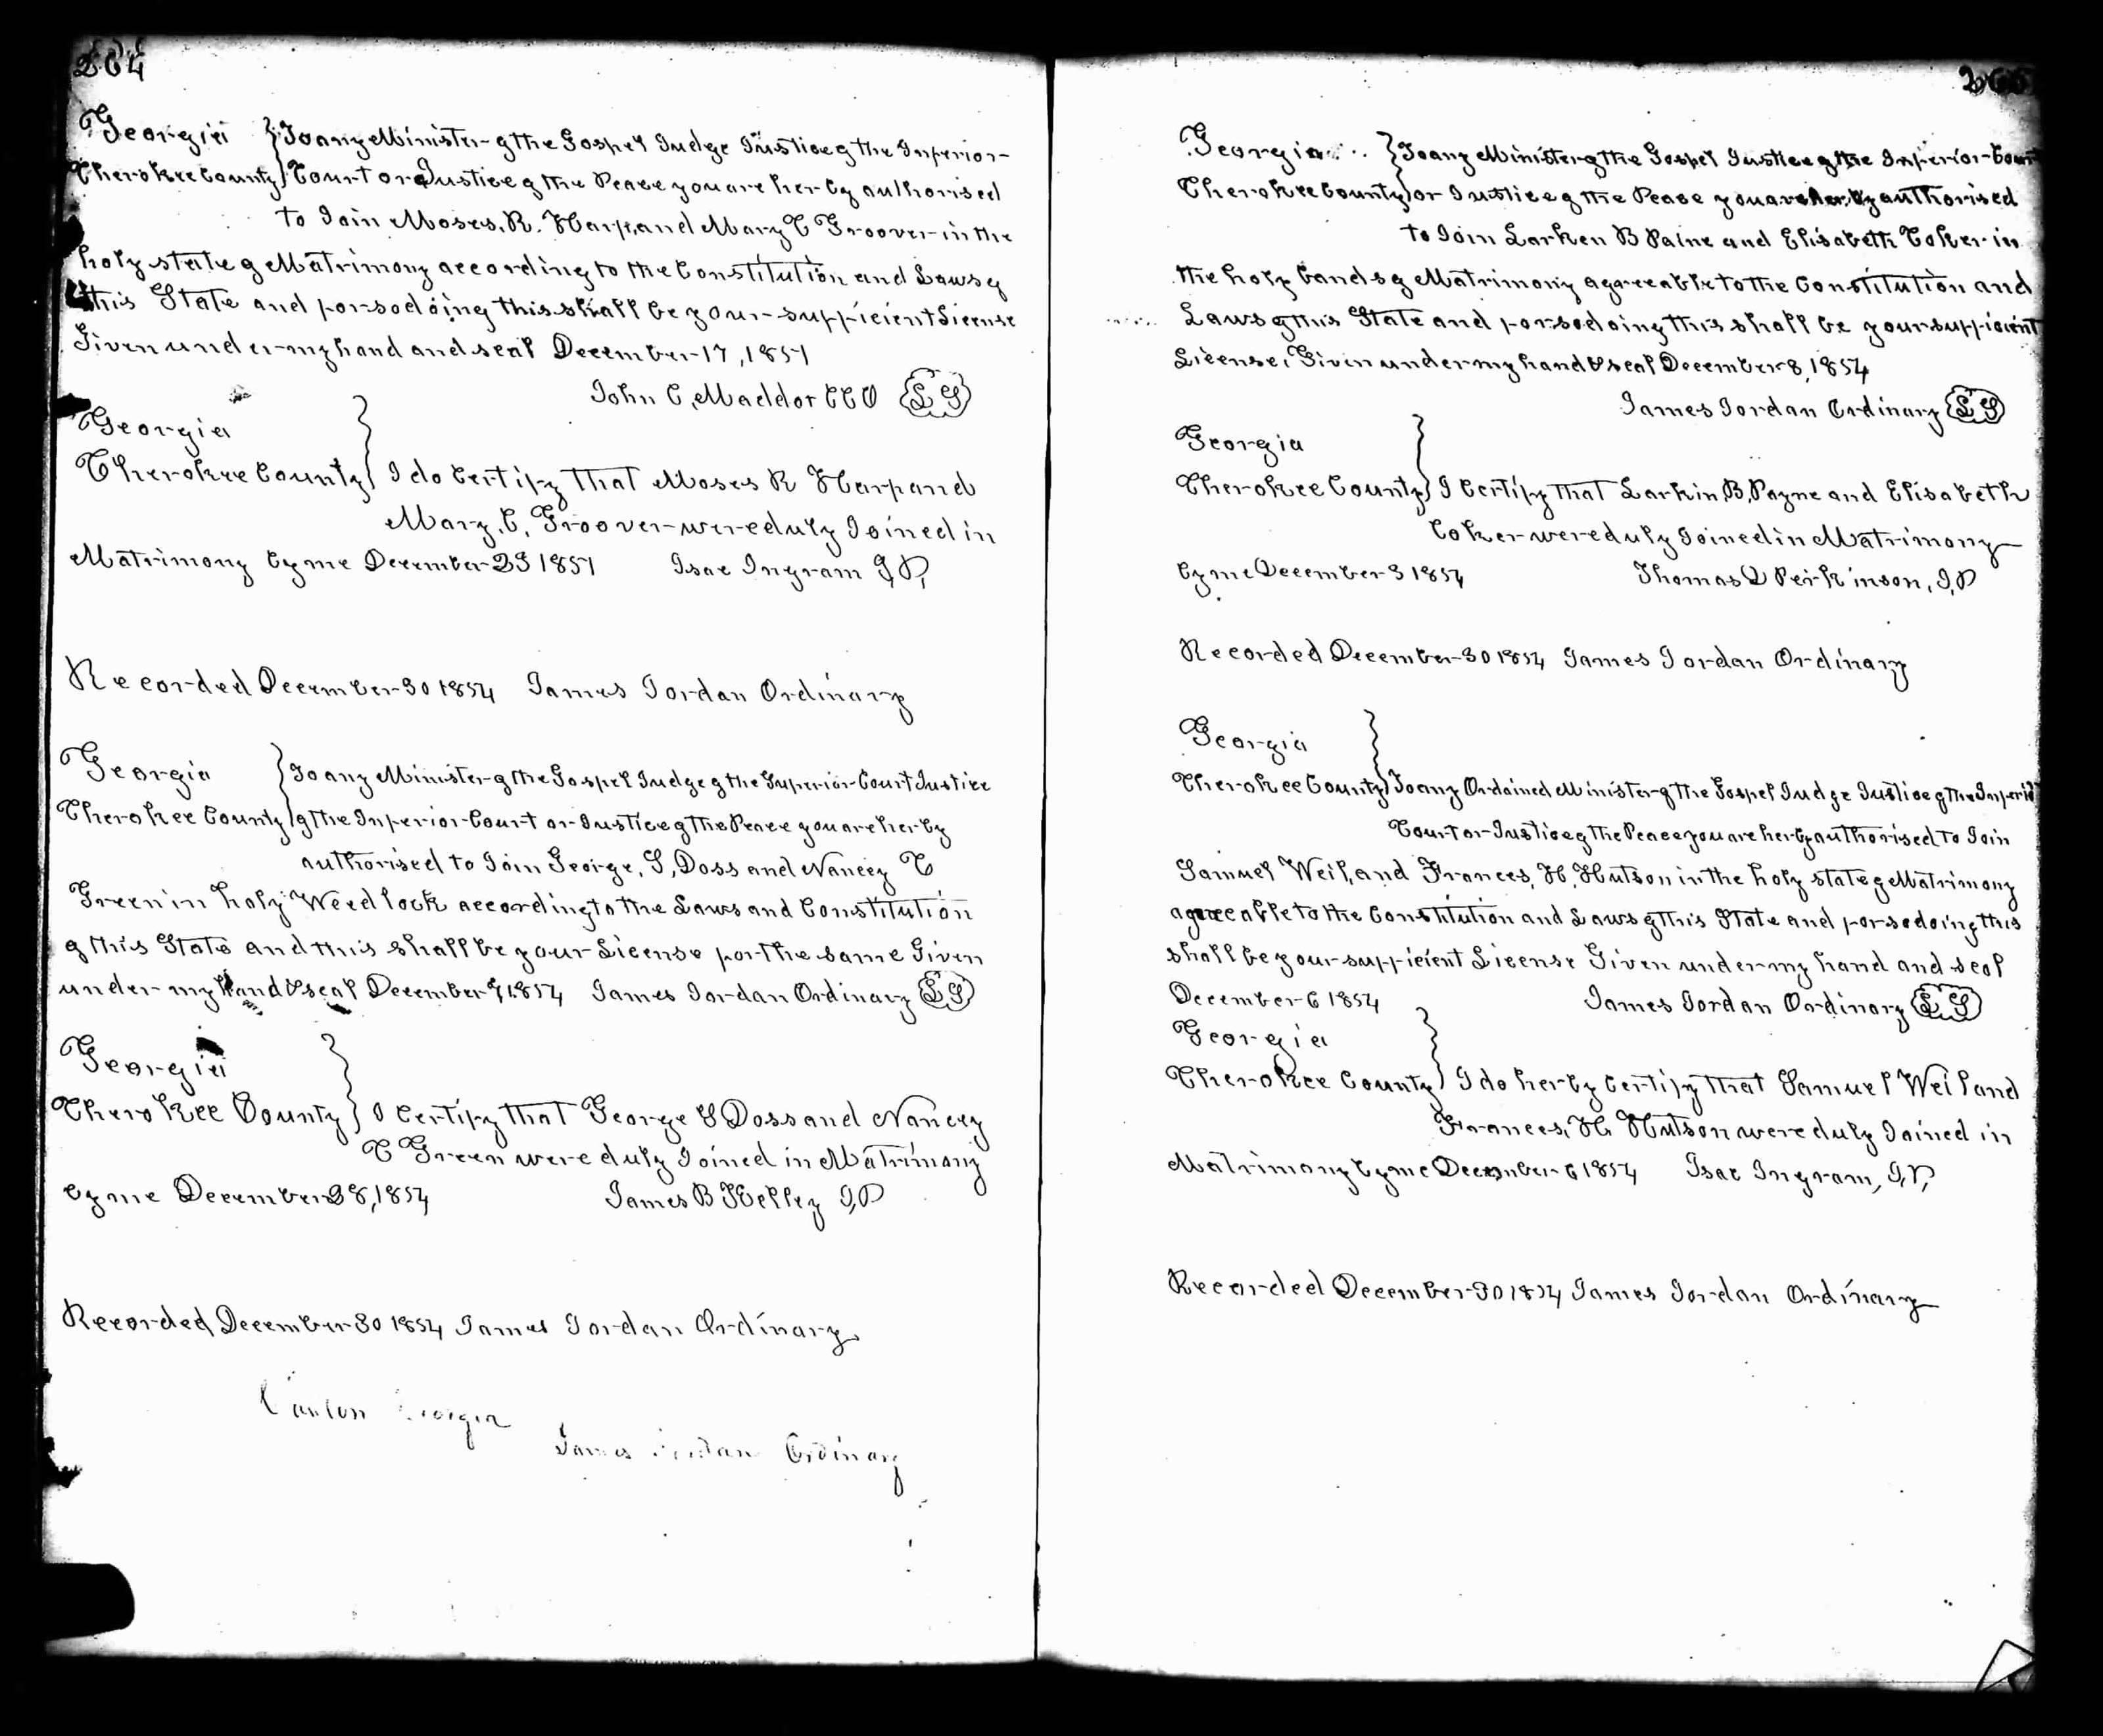 264
Georgia } To any Minister of the Gospel Judge Justice of the Inferior
Cherokee County } Court or Justice of the Peace you are herby authorised
to Join Moses. R. Harp, and Mary C Groover in the
holy state of Matrimony according to the Constitution and Laws of
this State and for so doing this shall be your sufficient License
Given under my hand and seal December 17, 1851
John C, Maddox CCO LS
Georgia
Cherokee County } I do Certify that Moses R Harp and
Mary. C. Groover were duly Joined in
Matrimony by me December 23 1851 Isac Ingram J,P,
Recorded December 30 1854 James Jordan Ordinary
Georgia } To any Minister of the Gospel Judge of the Superior Court Justice
Cherokee County } of the Inferior Court or Justice of the Peace you are herby
authorised to Join George, S, Doss and Nancey C
Green in holy Weed lock according to the Laws and Constitution
of this State and this shall be your License for the same Given
under my hand & seal December 1854 James Jordan Ordinary LS
Georgia
Cherokee County } I Certify that George S Doss and Nancey
C Green were duly Joined in Matrimony
by me December 28, 1854 James B Kelley J,P
Recorded December 30 1854 James Jordan Ordinary
Canton Georgia
James Jordan Ordinary
265
Georgia } To any Minister of the Gospel Justice of the Inferior Court
Cherokee County } or Justice of the Peace you are herby authorised
to Join Larken B Paine and Elisabeth Coker in
the holy bands of Matrimony agreeable to the Constitution and
Laws of this State and for so doing this shall be your sufficient
License, Given under my hand & seal December 8, 1854
James Jordan Ordinary LS
Georgia
Cherokee County } I Certify that Larkin, B, Payne and Elisabeth
Coker were duly Joined in Matrimony
by me December 3 1854 Thomas Q Perkinson, J,P
Recorded December 30 1854 James Jordan Ordinary
Georgia
Cherokee County } To any Ordained Minister of the Gospel Judge Justice of the Inferior
Court or Justice of the Peace you are herby authorised to Join
Samuel Weil, and Frances, H, Hutson in the holy state of Matrimony
agreeable to the Constitution and Laws of this State and for so doing this
shall be your sufficient License Given under my hand and seal
December 6 1854 James Jordan Ordinary LS
Georgia
Cherokee County } I do herby Certify that Samuel Weil and
Frances, H. Hutson were duly Joined in
Matrimony by me December 6 1854 Isac Ingram, J,P,
Recorded December 30 1854 James Jordan Ordinary